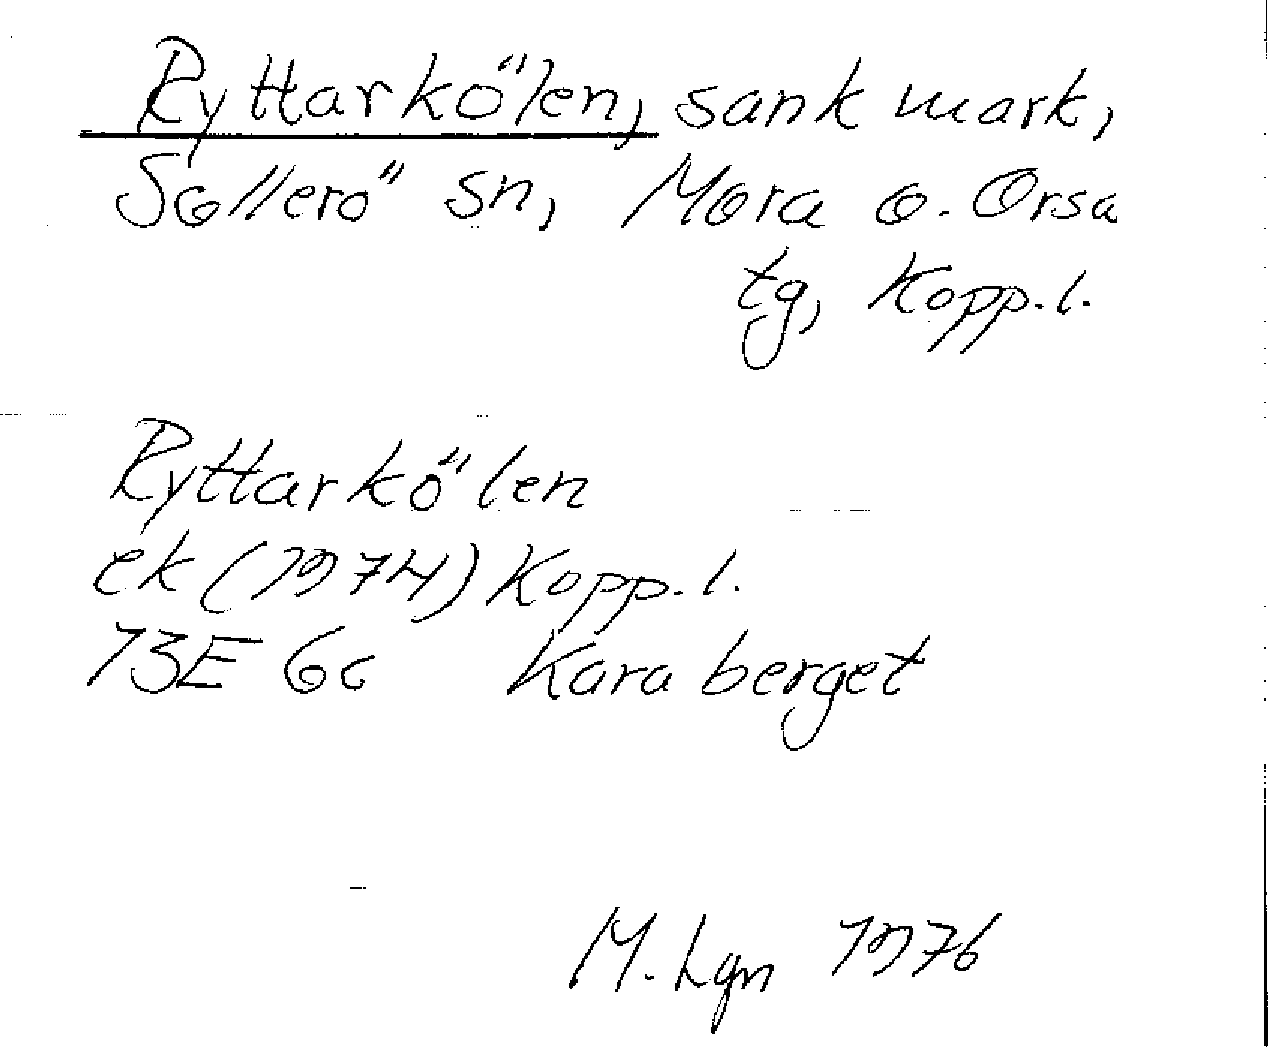 Ryttarkölen, sank mark,
Sollerö sn, Mora o. Orsa
tg, Kopp. l.
Ryttarkölen
ek (1974) Kopp. l.
13E 6c Kara berget
M. Lgn 1976